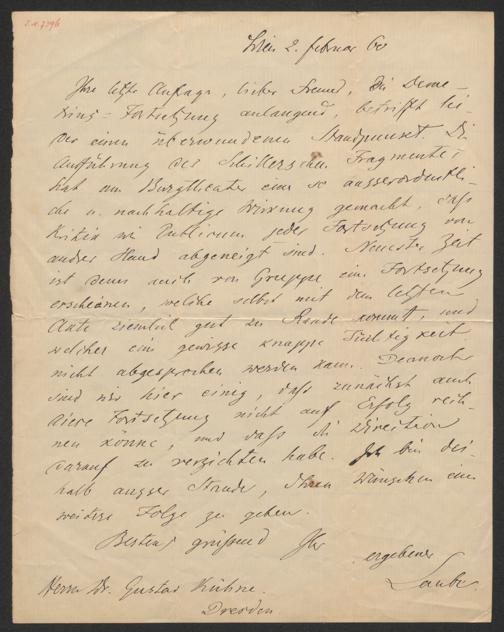 Wien 2. Februar 60
Ihre letzte Anfrage, lieber Freund, die Deme-
trius-Fortsetzung anlangend, betrifft lei-
der einen überwundenen Standpunct. Die
Aufführung des Schillerschen Fragmentes
hat am Burgtheater eine so ausserordentli-
che u. nachhaltige Wirkung gemacht, daß
Kritik wie Publicum jeder Fortsetzung von
andrer Hand abgeneigt sind. Neuester Zeit
ist denn auch von Gruppe eine Fortsetzung
erschienen, welche selbst mit dem letzten
Akte ziemlich gut zu Rande kommt, und
welcher eine gewisse knappe Tüchtigkeit
nicht abgesprochen werden kann. Dennoch
sind wir hier einig, daß zunächst auch
diese Fortsetzung nicht auf Erfolg rech-
nen könne, und daß die Direction
darauf zu verzichten habe. Ich bin des-
halb ausser Stande, Ihren Wünschen eine
weitere Folge zu geben.
Bestens grüßend Ihr
ergebener
Laube.
Herrn Dr. Gustav Kühne.
Dresden